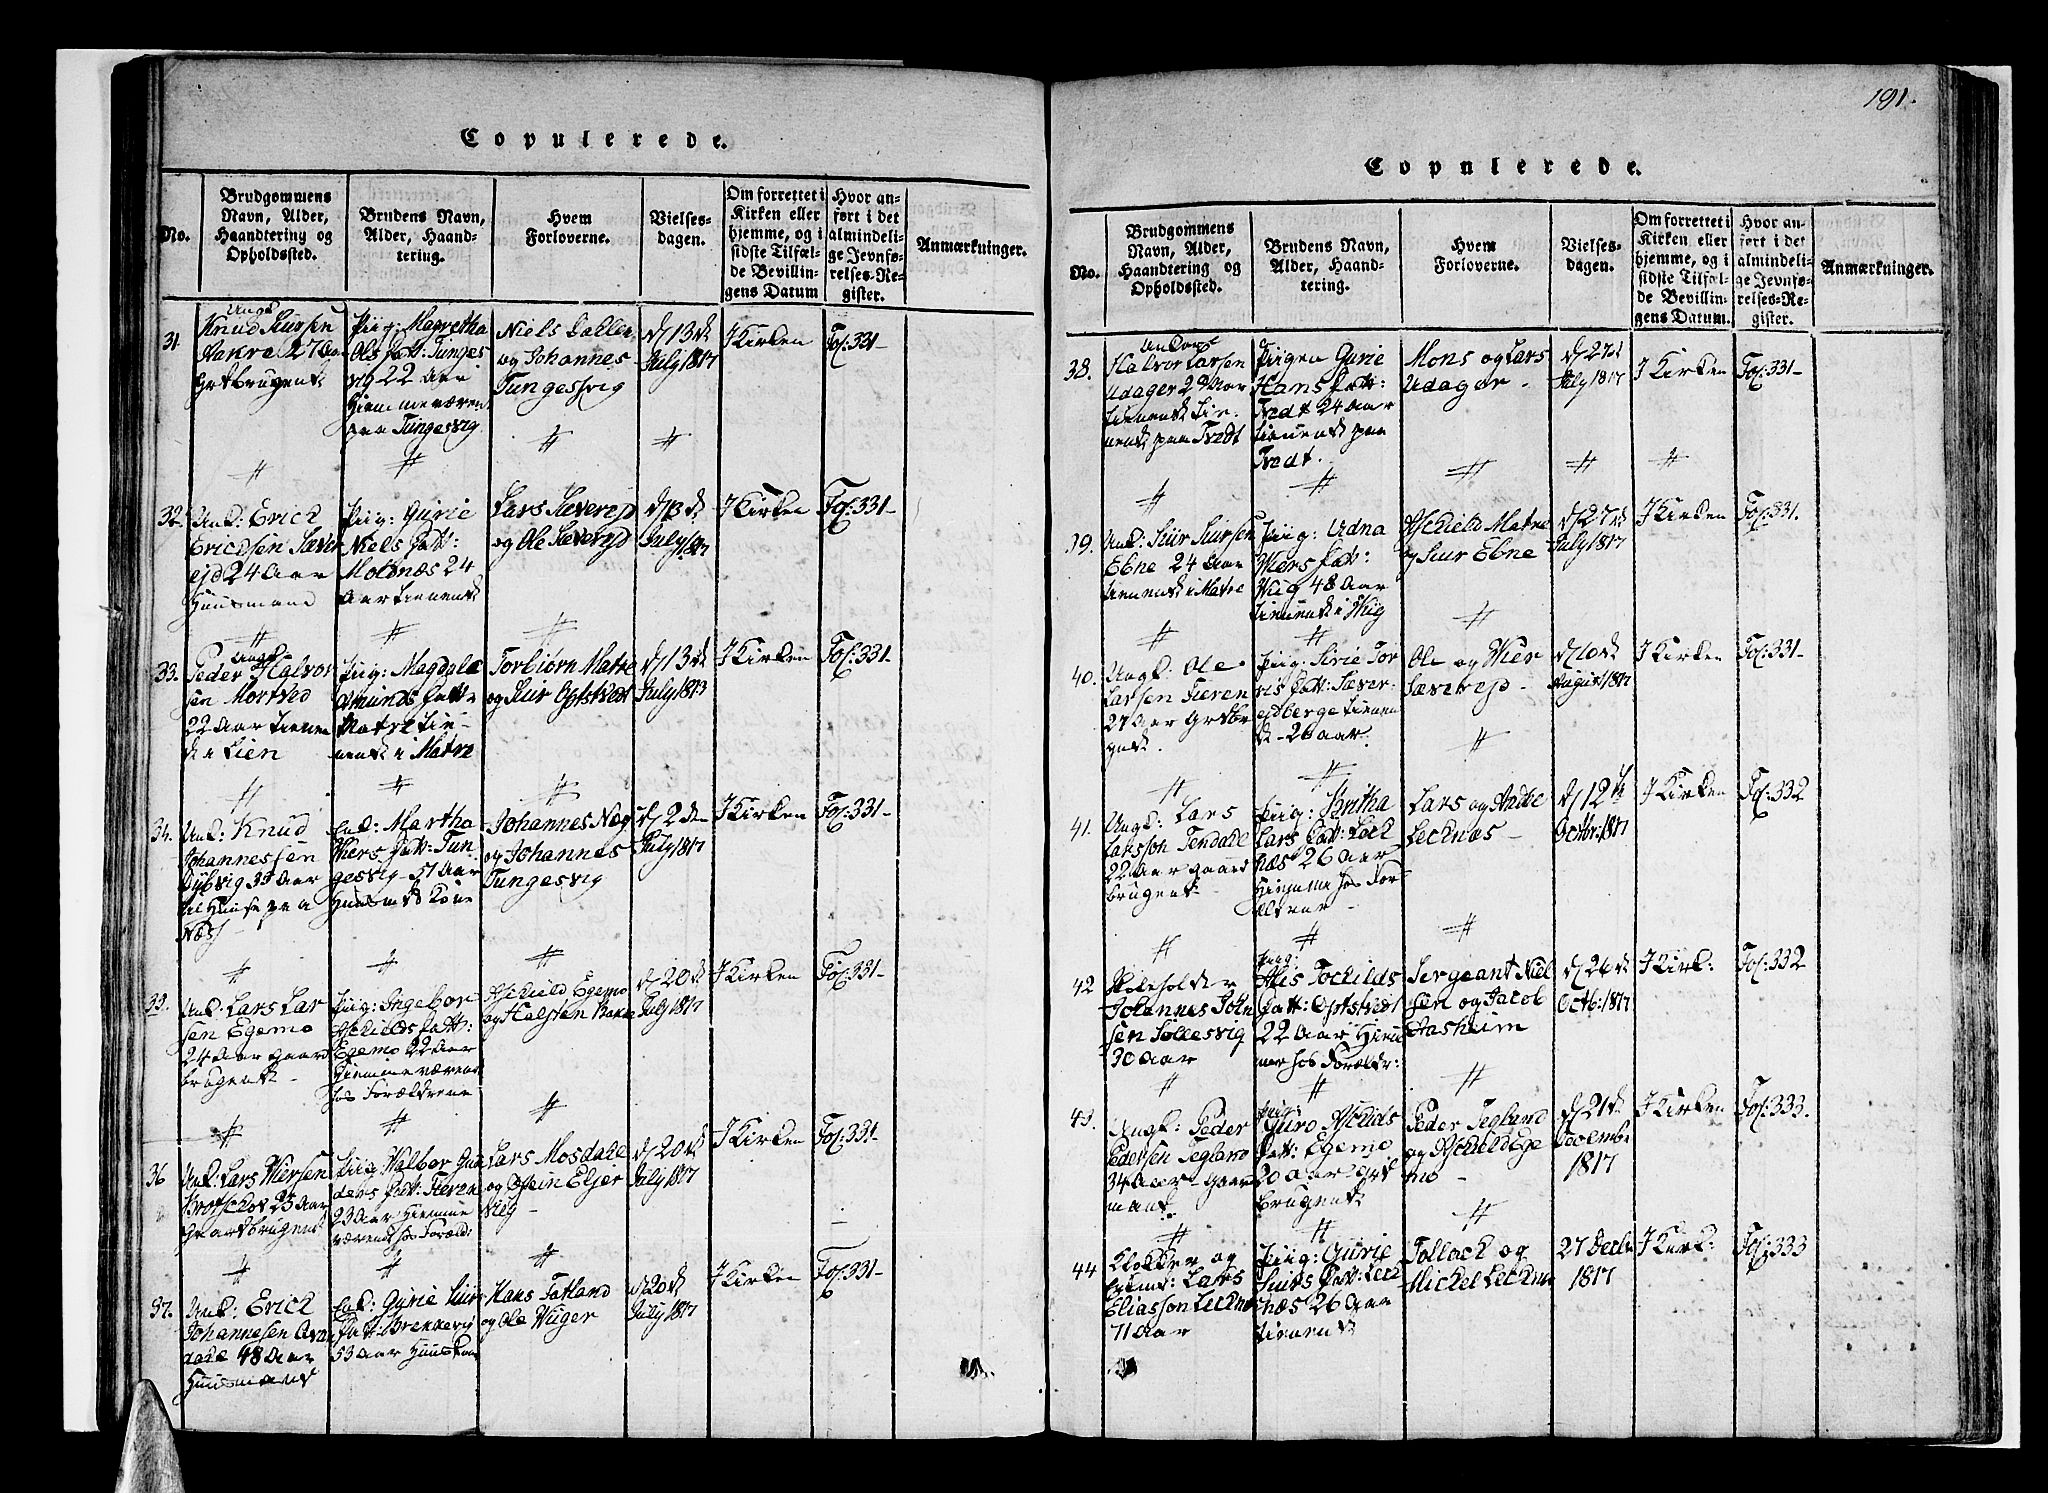 191.
Copulerede.
No.
Brudgommens
Navn, Alder,
Haandtering og
Opholdssted.
Brudens Navn,
Alder, Haand-
tering.
Hvem
Forloverne.
Vielses-
dagen.
Om forrettet i
Kirken eller
hjemme, og i
sidste Tilfæl-
de Bevillin-
gens Datum
Hvor an-
ført i det
almindeli-
ge Jevnfø-
relses-Re-
gister.
Anmærkninger.
31.
Ungk
Knud
27 Aar
Piig: Magretha
Ols Datt: Tunges
vig 22 Aar
Hiemmeværen
paa Tungesvig
Niels
og Johannes
Tungesvig
d 13de
July 1817
I Kirken
Fol: 331-
32.
Unk: Erich
Erichsen Sæver
ejd 24 Aar
Huusmand
Piig: Gurie
Niels Datt:
Molnæs 24
Aar tienende
Lars Sæverejd
og Ole Sæverejd
d 13de
July 1817
I Kirken
Fol: 331-
33.
Ungk
Peder Halvor
sen Mortved
22 Aar tienen
de i Lien
Piig: Magdele
Amunds Datt
Matre tie-
nende i Matre
Torbiørn Matre
og Siur
d 13de
July 1813
I Kirken
Fol: 331-
34.
Unk: Knud
Johannessen
Dybvig 35 Aar
til Huuse paa
Næs
Enk: Martha
Wiers Datt: Tun
gesvig - 57 Aar
Huusmds Kone
Johannes Næs
og Johannes
Tungesvig
d 2den
July 1817
I Kirken
Fol: 331-
35.
Unk: Lars Lar
sen Egemo
24 Aar Gaard
brugende -
Piig: Ingebor
Aschilds Datt:
Egemo 22 Aar
Hiemmeværen
hos Forældrene
Aschild Egemo
og Halsten
d 20de
July 1817
I Kirken
Fol: 331-
36
Unk: Lars Wiersen
25 Aar
Gaardbrugend
Piig: Walbor Gun
ders Datt: Fieren
23 Aar Hiemme
værend hos Foræld:
Lars Mosdale
og
Wiig -
d 20de
July 1817
I Kirken
Fol: 331-
37.
Unk: Erich
Johannesen
dahl 48 Aar
Huusmand
Enk: Gyrie Siurs
Datt: Brekkevig
53 Aar Huuskone
Hans Fatland
og Ole Wiiger
d 20de
July 1817
I Kirken
Fol: 331-
Copulerede.
No.
Brudgommens
Navn, Alder,
Haandtering og
Opholdssted.
Brudens Navn,
Alder, Haand-
tering.
Hvem
Forloverne.
Vielses-
dagen.
Om forrettet i
Kirken eller
hjemme, og i
sidste Tilfæl-
de Bevillin-
gens Datum.
Hvor an-
ført i det
almindeli-
ge Jevnfø-
relses-Re-
gister.
Anmærkninger.
38.
Halvor Larsen
Udager 29 Aar
paa Tvedt
Piigen Gurie
Hans Datt:
Tvedt 24 Aar
tienende paa
Tvedt.
Mons og Lars
Udager -
d 27de
July 1817
I Kirken
Fol: 331-
39.
Unk: Siur Siursen
Ebne 24 Aar
tienende i Matre
Piig: Udna
Wiers Datt:
Wiig 48 Aar
tienende i Wiig
Aschield Matre
og Siur Ebne
d 27de
July 1817
I Kirken
Fol: 331.
40.
Ungk: Ole
Larsen Fieren
27 Aar
Piig: Sirie Tor
ris Datt: Sæver-
ejdberge tienen
de - 26 aar.
Ole og Wier
Sæverejd -
d 10de
August 1817
I Kirken
Fol: 331-
41.
Ungk: Lars
Larsson Tendale
22 Aar Gaard
brugende -
Piig: Britha
Lars Datt: Leck
næs 26 Aar
Hiemme hos For-
ældrene -
Lars og Andre
Lecknæs -
d 12te
Octbr: 1817
I Kirken
Fol: 332
42
Skoleholder
Johannes John
sen Sollesvig
30 Aar
Piig:
Tochilds
Datt:
22 Aar Hiem
me hos Forældr:
Sergeant Niel
sen og Jacob
Aasheim
d 26de
Octb: 1817
I Kirk:
Fol: 332
43.
Ungk: Peder
Pedersen Tegland
34 Aar - Gaar
mand.
Piig:
Guro Aschilds
Datt: Egemo
20 Aar -
brugende
Peder Tegland
og Aschield Ege
mo -
d 21de
1817
I Kirken
Fol: 333.
44
Klokker og
Enkmd: Lars
Eliassøn Lecknæs
71 Aar
Piig: Gurie
Siurs Datt: Leck
næs 26 Aar
tienende
Tollach og
Michel Lecknæs
27 Decbr
1817
I Kirk:
Fol: 333